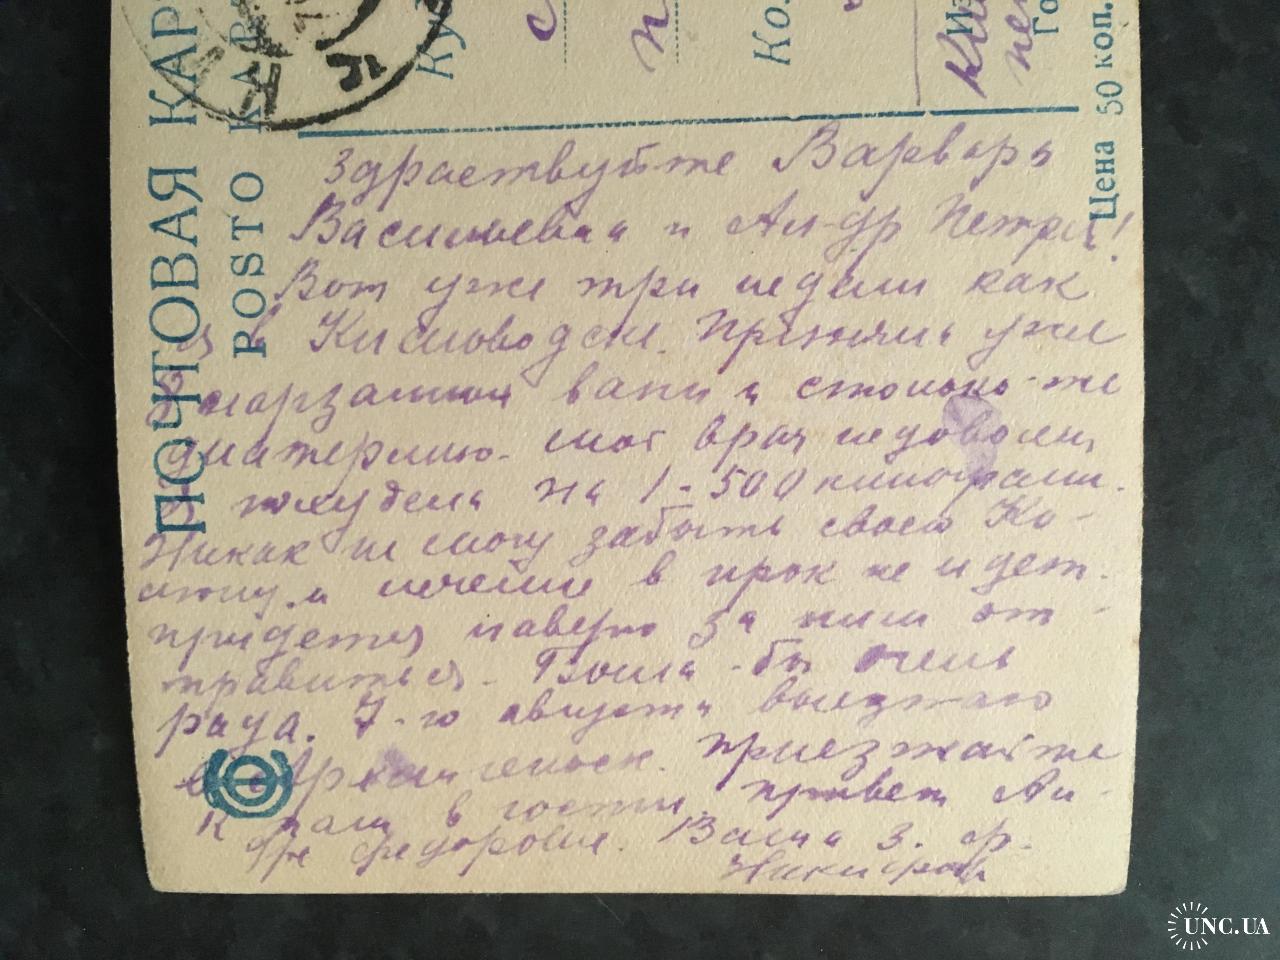 ПОЧТОВАЯ КАР
POSTO KAR
Ку
с
п
Ко.
Из
Го
Цена 50 коп.
Здраствуйте Варвара
Васильевна и Ал-др Петров!
Вот уже три недели как
я в Кисловодске. Приняла уже
нарзанных ванн и столько-же
диатермию. мой врач недоволен,
я похудела на 1-500 килограмм.
Никак не могу забыть свою Ко-
и лечение в прок не идет.
придется наверно за ним от-
правиться. Была-бы очень
рада. 7-го августа выезжаю
в Архангельск. приезжайте
к нам в гости, привет Ан-
Федоровне. Ваша З. Ф.
Никифор
UNC.UA